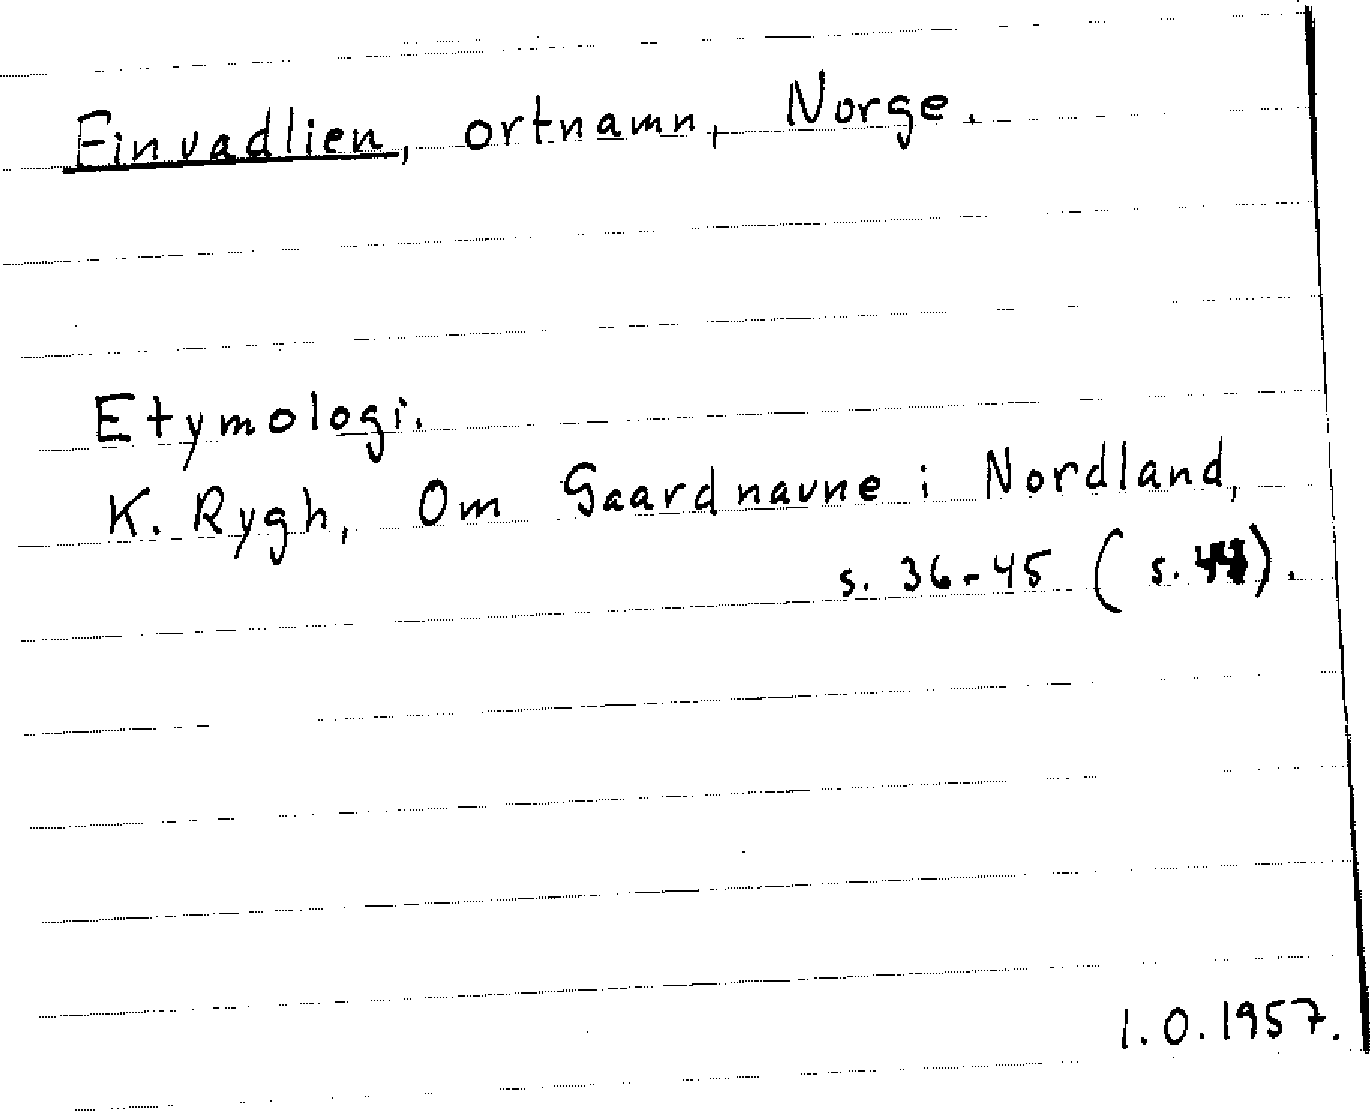 Einvadlien, ortnamn, Norge.
Etymologi.
K. Rygh, Om Gaardnavne i Nordland,
s. 36-45 (s. 44).
I.O. 1957.